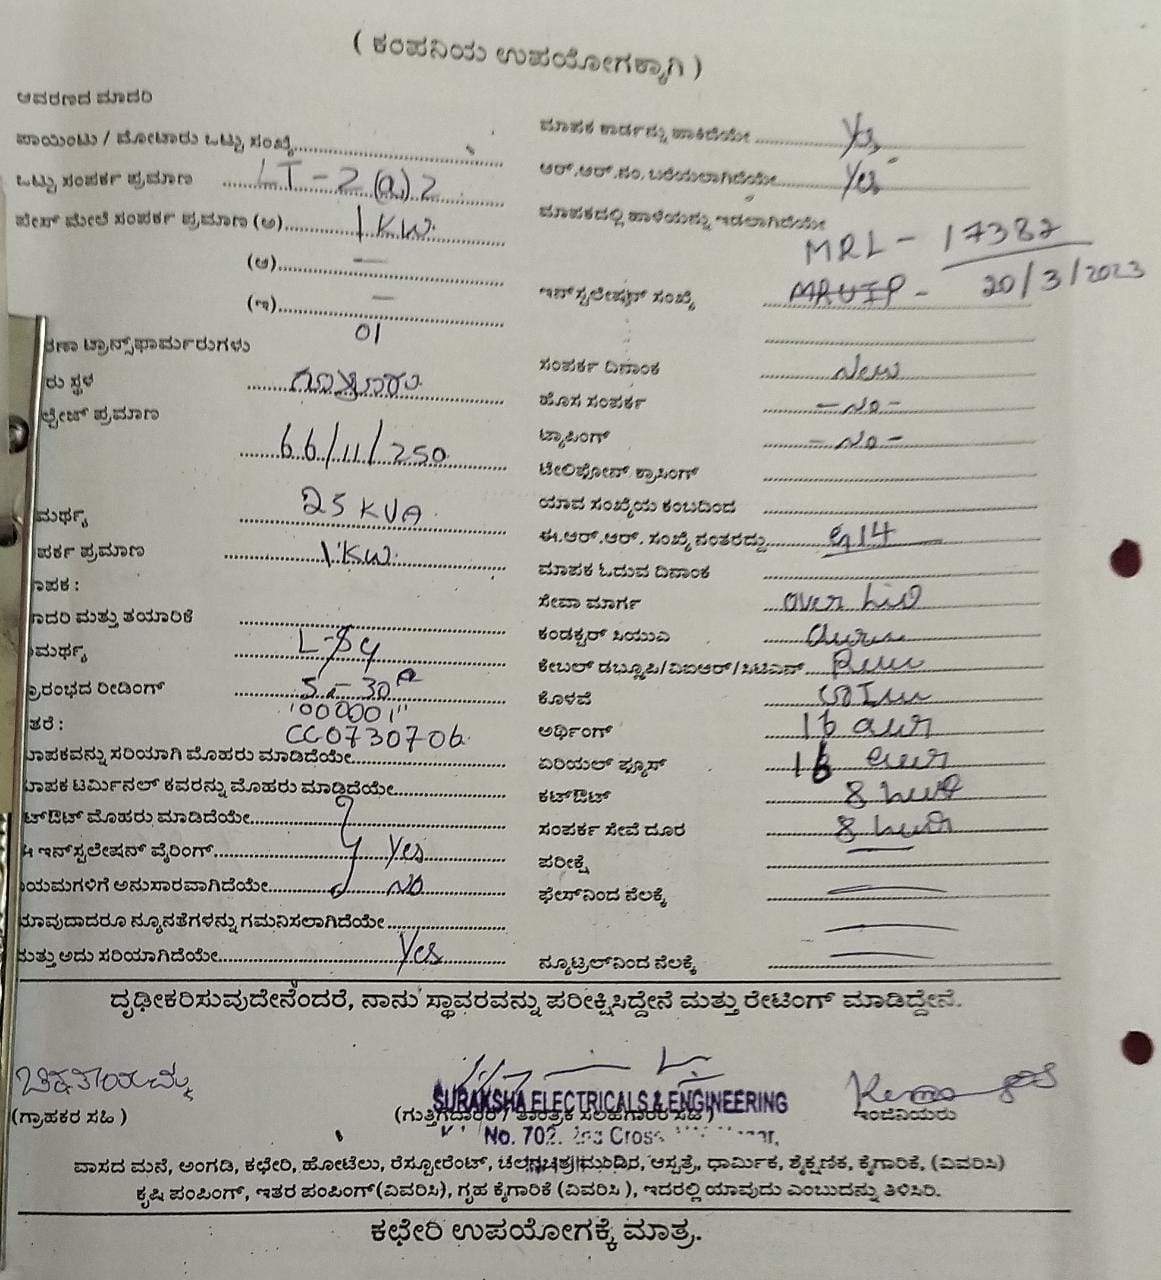 ( ಕಂಪನಿಯ ಉಪಯೋಗಕ್ಕಾಗಿ )
ಆವರಣದ ಮಾದರಿ
ಪಾಯಿಂಟು / ಮೋಟಾರು ಒಟ್ಟು ಸಂಖ್ಯೆ
ಒಟ್ಟು ಸಂಪರ್ಕ ಪ್ರಮಾಣ LT-2(a)2
ಪೇಸ್ ಮೇಲೆ ಸಂಪರ್ಕ ಪ್ರಮಾಣ (ಅ) 1 KW
(ಆ) —
(ಇ) —
01
ರಣಾ ಟ್ರಾನ್ಸ್‌ಫಾರ್ಮರುಗಳು
ರು ಸ್ಥಳ
ಲ್ಟೇಜ್ ಪ್ರಮಾಣ
66/11/250
ಮರ್ಥ್ಯ 25 KVA
ಪರ್ಕ ಪ್ರಮಾಣ 1 KW
ಾಪಕ :
ಾದರಿ ಮತ್ತು ತಯಾರಿಕೆ
ಮರ್ಥ್ಯ
ಾರಂಭದ ರೀಡಿಂಗ್ 5 - 30 A
"000001"
ತರೆ : CC0730706
ಾಪಕವನ್ನು ಸರಿಯಾಗಿ ಮೊಹರು ಮಾಡಿದೆಯೇ
ಾಪಕ ಟರ್ಮಿನಲ್ ಕವರನ್ನು ಮೊಹರು ಮಾಡಿದೆಯೇ
ಟ್‌ಔಟ್ ಮೊಹರು ಮಾಡಿದೆಯೇ
ಈ ಇನ್‌ಸ್ಟಲೇಷನ್ ವೈರಿಂಗ್ Yes
ಯಮಗಳಿಗೆ ಅನುಸಾರವಾಗಿದೆಯೇ NO
ಾವುದಾದರೂ ನ್ಯೂನತೆಗಳನ್ನು ಗಮನಿಸಲಾಗಿದೆಯೇ
ಮತ್ತು ಅದು ಸರಿಯಾಗಿದೆಯೇ Yes
ಮಾಪಕ ಕಾರ್ಡನ್ನು ಹಾಕಿದೆಯೇ Yes
ಆರ್.ಆರ್.ನಂ. ಬರೆಯಲಾಗಿದೆಯೇ Yes
ಮಾಪಕದಲ್ಲಿ ಹಾಳೆಯನ್ನು ಇಡಲಾಗಿದೆಯೇ
MRL - 17382
20/3/2023
ಇನ್‌ಸ್ಟಲೇಷನ್ ಸಂಖ್ಯೆ
ಸಂಪರ್ಕ ದಿನಾಂಕ New
ಹೊಸ ಸಂಪರ್ಕ - No -
ಟ್ಯಾಪಿಂಗ್ - No -
ಟೇಲಿಫೋನ್ ಕ್ರಾಸಿಂಗ್
ಯಾವ ಸಂಖ್ಯೆಯ ಕಂಬದಿಂದ
ಈ.ಆರ್.ಆರ್. ಸಂಖ್ಯೆ ನಂತರದ್ದು
ಮಾಪಕ ಓದುವ ದಿನಾಂಕ
ಸೇವಾ ಮಾರ್ಗ
ಕಂಡಕ್ಟರ್ ಸಿಯುಎ
ಕೇಬಲ್ ಡಬ್ಲ್ಯೂಪಿ/ವಿಐಆರ್/ಸಿಟಿಎಸ್
ಕೊಳವೆ
ಅರ್ಥಿಂಗ್ 16
ಏರಿಯಲ್ ಫ್ಯೂಸ್ 16
ಕಟ್‌ಔಟ್ 8
ಸಂಪರ್ಕ ಸೇವೆ ದೂರ 8
ಪರೀಕ್ಷೆ
ಫೇಸ್‌ನಿಂದ ನೆಲಕ್ಕೆ
ನ್ಯೂಟ್ರಲ್‌ನಿಂದ ನೆಲಕ್ಕೆ
ದೃಢೀಕರಿಸುವುದೇನೆಂದರೆ, ನಾನು ಸ್ಥಾವರವನ್ನು ಪರೀಕ್ಷಿಸಿದ್ದೇನೆ ಮತ್ತು ರೇಟಿಂಗ್ ಮಾಡಿದ್ದೇನೆ.
(ಗ್ರಾಹಕರ ಸಹಿ )
SURAKSHA ELECTRICALS & ENGINEERING
(ಗುತ್ತಿಗೆದಾರರ / ತಾಂತ್ರಿಕ ಸಲಹೆಗಾರರ ಸಹಿ )
ಇಂಜಿನಿಯರು
No. 702, 2nd Cross
ವಾಸದ ಮನೆ, ಅಂಗಡಿ, ಕಛೇರಿ, ಹೋಟೆಲು, ರೆಸ್ಟೋರೆಂಟ್, ಚಲನಚಿತ್ರ ಮಂದಿರ, ಆಸ್ಪತ್ರೆ, ಧಾರ್ಮಿಕ, ಶೈಕ್ಷಣಿಕ, ಕೈಗಾರಿಕೆ, (ವಿವರಿಸಿ)
ಕೃಷಿ ಪಂಪಿಂಗ್, ಇತರ ಪಂಪಿಂಗ್(ವಿವರಿಸಿ), ಗೃಹ ಕೈಗಾರಿಕೆ (ವಿವರಿಸಿ ), ಇದರಲ್ಲಿ ಯಾವುದು ಎಂಬುದನ್ನು ತಿಳಿಸಿರಿ.
ಕಛೇರಿ ಉಪಯೋಗಕ್ಕೆ ಮಾತ್ರ.